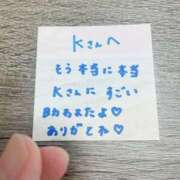 Kさんへ
そう本当に本当
Kさんに すごい
助あなたよ♡
ありがとね♡